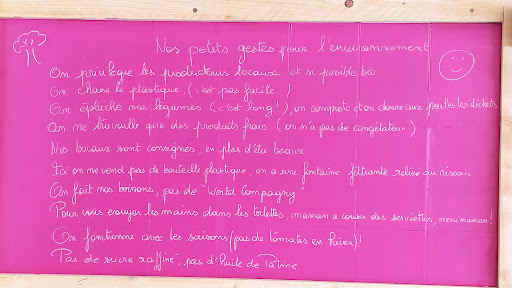 Nos petits gestes pour l'environnement
On privilégie les producteurs locaux et si possible bio
On chasse le plastique, (c'est pas facile)
On épluche nos légumes (c'est long!), on composte et on donne aux poules les déchets
On ne travaille que des produits frais (on n'a pas de congélateur)
Nos bocaux sont consignés, en plus d'être beaux
Ici on ne vend pas de bouteille plastique, on a une fontaine filtrante reliée au réseau
On fait nos boissons, pas de "World Compagny"
Pour vous essuyer les mains dans les toilettes, maman a cousu des serviettes, merci maman!
On fonctionne avec les saisons (pas de tomates en hiver)!
Pas de sucre raffiné, pas d'huile de Palme